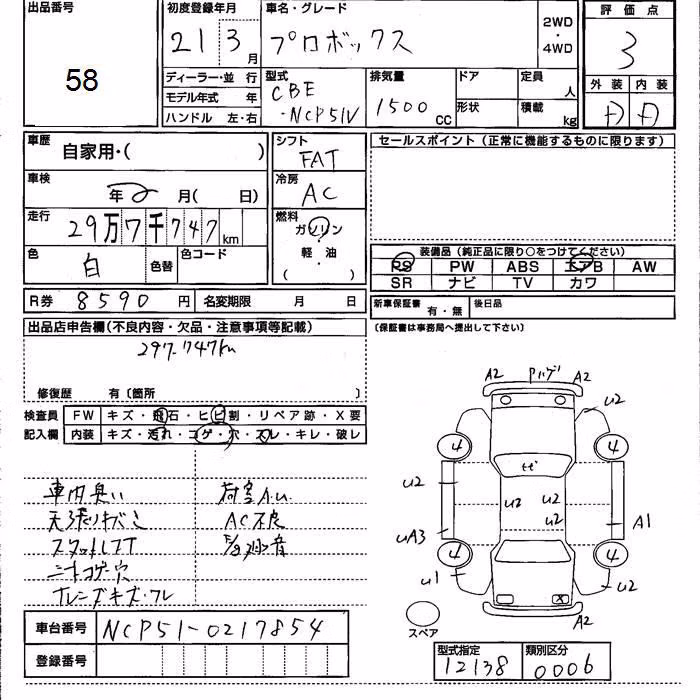 出品番号
58
初度登録年月
21 3月
車名・グレード
プロボックス
2WD・4WD
評価点
3
ディーラー・並行
モデル年式 年
ハンドル 左・右
型式
CBE-NCP51V
排気量
1500CC
ドア
形状
定員 人
積載 kg
外装 内装
車歴
自家用・( )
シフト
FAT
セールスポイント(正常に機能するものに限ります)
車検
年 月( 日)
冷房
AC
走行
29万7千747km
燃料
ガソリン・軽油
( )
色
白
色替
色コード
装備品(純正品に限り○をつけてください)
PS PW ABS エアB AW
SR ナビ TV カワ
R券 8590円
名変期限 月 日
新車保証書 有・無
後日品
(保証書は事務局へ提出して下さい)
出品店申告欄(不良内容・欠品・注意事項等記載)
297.747km
修復歴 有〔箇所 〕
検査員記入欄
FW キズ・飛石・ヒビ割・リペア跡・X要
内装 キズ・汚れ・コゲ・穴・スレ・キレ・破レ
車内臭い
荷室A.U
AC不良
A2 A2
U2
4 4
U2
U2 U2
U2
UA3 A1
4 4
U1 U2
X
A2
スペア
車台番号 NCP51-0217854
登録番号
型式指定
12138
類別区分
0006